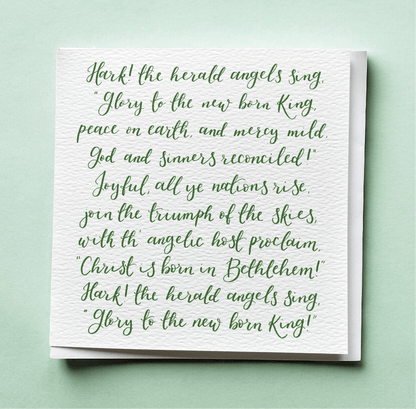 Hark! the herald angels sing,
"Glory to the new born King,
peace on earth, and mercy mild,
God and sinners reconciled!"
Joyful, all ye nations rise,
join the triumph of the skies,
with th' angelic host proclaim,
"Christ is born in Bethlehem!"
Hark! the herald angels sing,
"Glory to the new born King!"